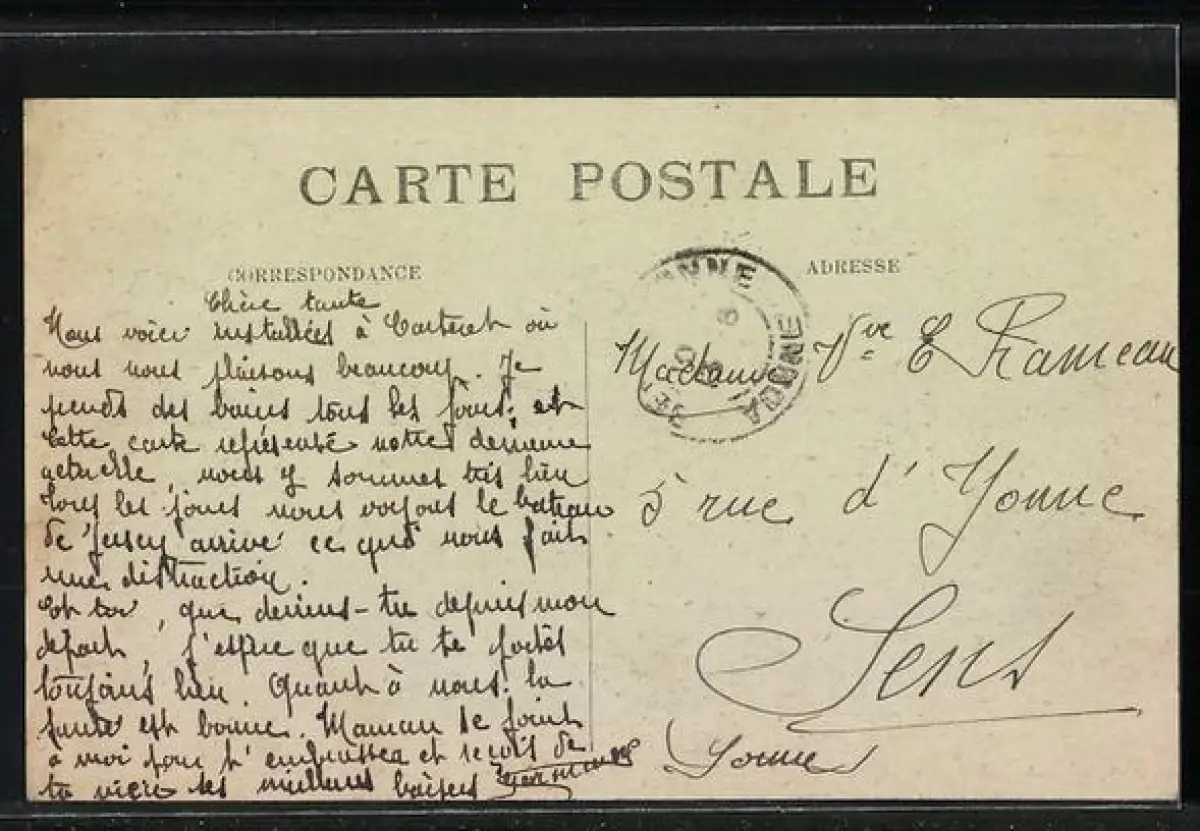 CARTE POSTALE
CORRESPONDANCE
ADRESSE
Chère tante
Nous voici installées à Carteret où
nous nous plaisons beaucoup. Je
prends des bains tous les jours. et
Cette carte représente notre demeure
actuelle, nous y sommes très bien
tous les jours nous voyons le bateau
de Jersey arrivé ce qui nous fait
une distraction.
Et toi, que deviens-tu depuis mon
départ, j'espère que tu te portes
toujours bien. Quant à nous la
santé est bonne. Maman se joint
à moi pour t'embrasser et reçois de
ta nièce ses meilleurs baisers
Madame Vve E Rameau
5 rue d'Yonne
Sens
Yonne
YONNE